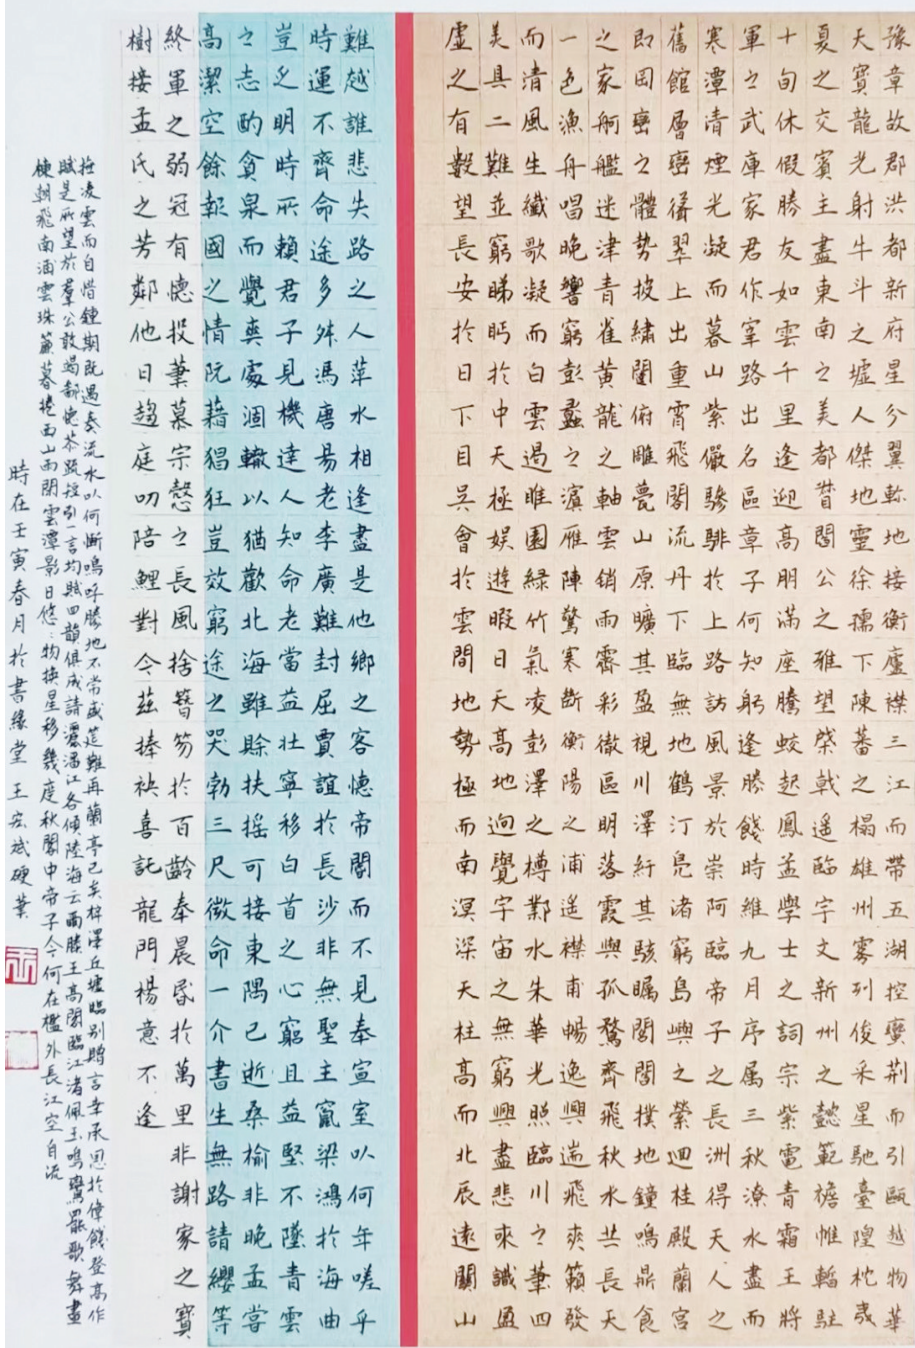 豫章故郡洪都新府星分翼軫地接衡廬襟三江而帶五湖控蠻荊而引甌越物華
天寶龍光射牛斗之墟人傑地靈徐孺下陳蕃之榻雄州霧列俊采星馳臺隍枕夷
夏之交賓主盡東南之美都督閻公之雅望棨戟遙臨宇文新州之懿範襜帷暫駐
十旬休假勝友如雲千里逢迎高朋滿座騰蛟起鳳孟學士之詞宗紫電青霜王將
軍之武庫家君作宰路出名區童子何知躬逢勝餞時維九月序属三秋潦水盡而
寒潭清煙光凝而暮山紫儼驂騑於上路訪風景於崇阿臨帝子之長洲得天人之
舊館層巒聳翠上出重霄飛閣流丹下臨無地鶴汀鳧渚窮島嶼之縈迴桂殿蘭宮
即岡巒之體勢披繡闥俯雕甍山原曠其盈視川澤紆其駭矚閭閻撲地鐘鳴鼎食
之家舸艦迷津青雀黃龍之軸雲銷雨霽彩徹區明落霞與孤鶩齊飛秋水共長天
一色漁舟唱晚響窮彭蠡之濱雁陣驚寒斷衡陽之浦遙襟甫暢逸興遄飛爽籟發
而清風生纖歌凝而白雲遏睢園綠竹氣凌彭澤之樽鄴水朱華光照臨川之筆四
美具二難並窮睇眄於中天極娛遊暇日天高地迥覺宇宙之無窮興盡悲來識盈
虛之有數望長安於日下目吳會於雲間地勢極而南溟深天柱高而北辰遠關山
難越誰悲失路之人萍水相逢盡是他鄉之客懷帝閽而不見奉宣室以何年嗟乎
時運不齊命途多舛馮唐易老李廣難封屈賈誼於長沙非無聖主竄梁鴻於海曲
豈乏明時所賴君子見機達人知命老當益壯寧移白首之心窮且益堅不墜青雲
之志酌貪泉而覺爽處涸轍以猶歡北海雖賒扶搖可接東隅已逝桑榆非晚孟嘗
高潔空餘報國之情阮藉猖狂豈效窮途之哭勃三尺微命一介書生無路請纓等
終軍之弱冠有懷投筆慕宗愨之長風捨簪笏於百齡奉晨昏於萬里非謝家之寶
樹接孟氏之芳鄰他日趨庭叨陪鯉對今茲捧袂喜託龍門楊意不逢
撫凌雲而自惜鍾期既遇奏流水以何慚嗚呼勝地不常盛筵難再蘭亭已矣梓澤丘墟臨別贈言幸承恩於偉餞登高作
賦是所望於羣公敢竭鄙懷恭疏短引一言均賦四韻俱成請灑潘江各傾陸海云爾滕王高閣臨江渚佩玉鳴鸞罷歌舞畫
棟朝飛南浦雲珠簾暮捲西山雨閒雲潭影日悠〻物換星移幾度秋閣中帝子今何在檻外長江空自流
時在壬寅春月於書緣堂王宏斌硬筆